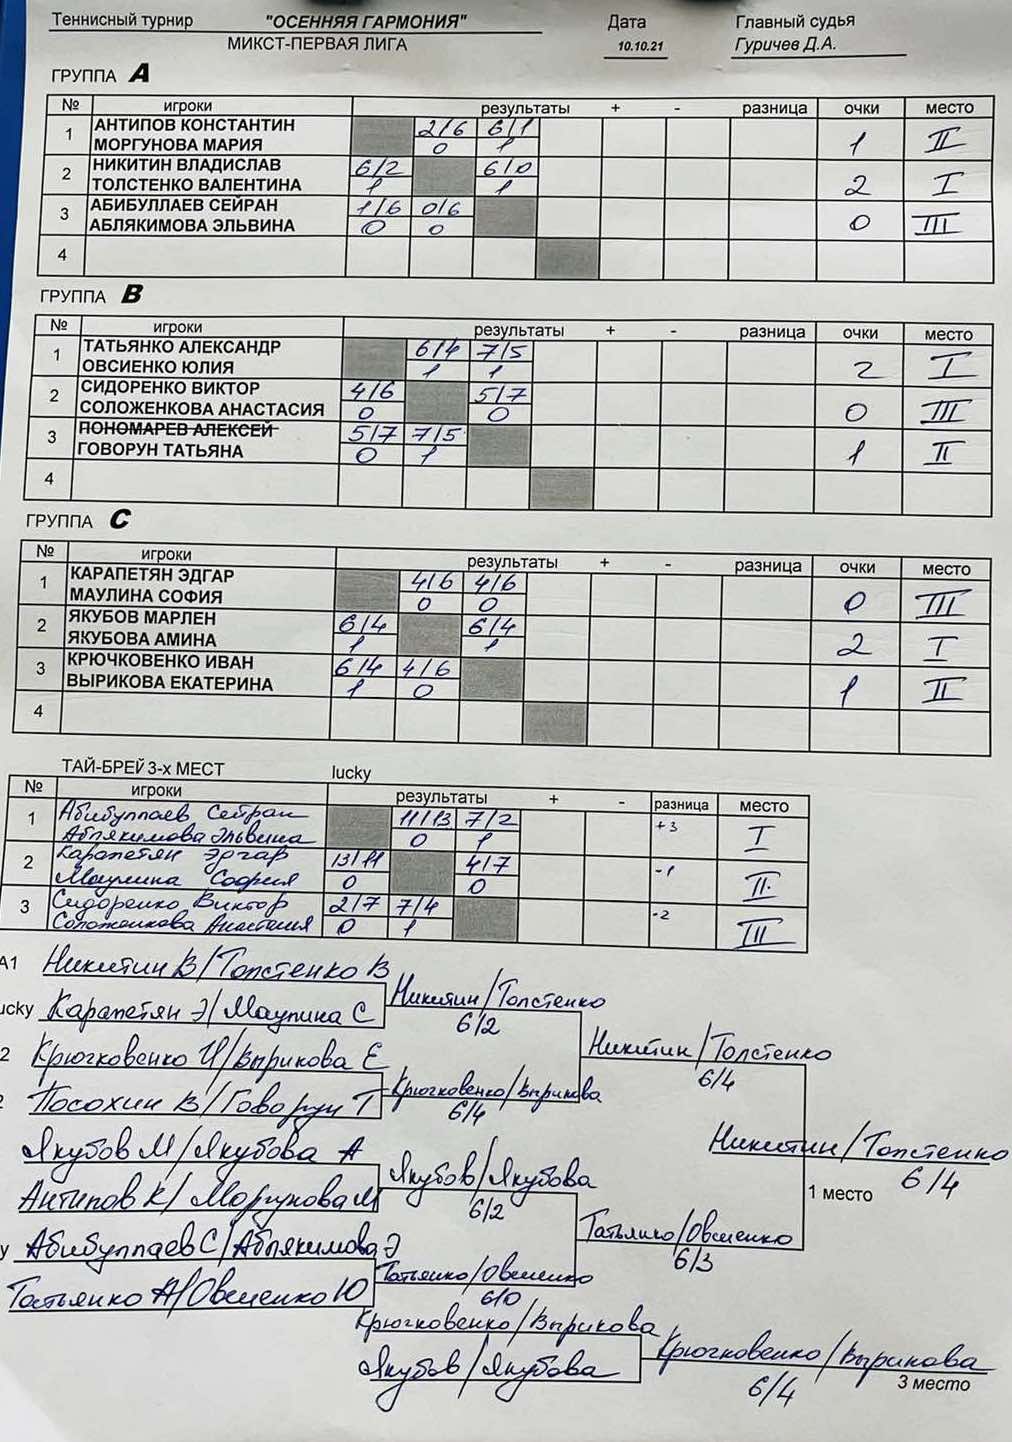 Теннисный турнир "ОСЕННЯЯ ГАРМОНИЯ" Дата Главный судья
МИКСТ-ПЕРВАЯ ЛИГА 10.10.21 Гуричев Д.А.
ГРУППА A
№ игроки результаты + - разница очки место
1 АНТИПОВ КОНСТАНТИН 2/6 6/1
МОРГУНОВА МАРИЯ 0 1 1 II
2 НИКИТИН ВЛАДИСЛАВ 6/2 6/0
ТОЛСТЕНКО ВАЛЕНТИНА 1 1 2 I
3 АБИБУЛЛАЕВ СЕЙРАН 1/6 0/6
АБЛЯКИМОВА ЭЛЬВИНА 0 0 0 III
4
ГРУППА B
№ игроки результаты + - разница очки место
1 ТАТЬЯНКО АЛЕКСАНДР 6/4 7/5
ОВСИЕНКО ЮЛИЯ 1 1 2 I
2 СИДОРЕНКО ВИКТОР 4/6 5/7
СОЛОЖЕНКОВА АНАСТАСИЯ 0 0 0 III
3 ПОНОМАРЕВ АЛЕКСЕЙ 5/7 7/5
ГОВОРУН ТАТЬЯНА 0 1 1 II
4
ГРУППА C
№ игроки результаты + - разница очки место
1 КАРАПЕТЯН ЭДГАР 4/6 4/6
МАУЛИНА СОФИЯ 0 0 0 III
2 ЯКУБОВ МАРЛЕН 6/4 6/4
ЯКУБОВА АМИНА 1 1 2 I
3 КРЮЧКОВЕНКО ИВАН 6/4 4/6
ВЫРИКОВА ЕКАТЕРИНА 1 0 1 II
4
ТАЙ-БРЕЙ 3-х МЕСТ lucky
№ игроки результаты + - разница место
1 Абибуллаев Сейран 11/13 7/2 +3
Аблякимова Эльвина 0 1 I
2 Карапетян Эдгар 13/11 4/7 -1
Маулина София 0 0 II
3 Сидоренко Виктор 2/7 7/4 -2
Соложенкова Анастасия 0 1 III
A1 Никитин В/Толстенко В
Никитин/Толстенко
ucky Карапетян Э/Маулина С
6/2
Никитин/Толстенко
2 Крючковенко И/Вырикова Е
6/4
Крючковенко/Вырикова
2 Посохин В/Говорун Т
6/4
Никитин/Толстенко
Якубов М/Якубова А
6/4
Якубов/Якубова
1 место
Антипов К/Моргунова М
6/2
Татьянко/Овсиенко
y Абибуллаев С/Аблякимова Э
6/3
Татьянко/Овсиенко
Татьянко А/Овсиенко Ю
6/0
Крючковенко/Вырикова
Крючковенко/Вырикова
Якубов/Якубова
6/4
3 место